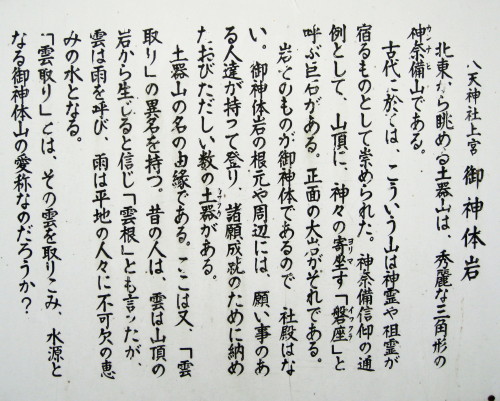 八天神社上宮 御神体岩
北東から眺める土器山は、秀麗な三角形の
神奈備山である。
古代に於ては、こういう山は神霊や祖霊が
宿るものとして崇められた。神奈備信仰の通
例として、山頂に、神々の寄坐す「磐座」と
呼ぶ巨石がある。正面の大岩がそれである。
岩そのものが御神体であるので 社殿はな
い。御神体岩の根元や周辺には、願い事のあ
る人達が持って登り、諸願成就のために納め
たおびただしい数の土器がある。
土器山の名の由縁である。ここは又、「雲
取り」の異名を持つ。昔の人は、雲は山頂の
岩から生じると信じ「雲根」とも言ッたが、
雲は雨を呼び、雨は平地の人々に不可欠の恵
みの水となる。
「雲取り」とは、その雲を取りこみ、水源と
なる御神体山の愛称なのだろうか?